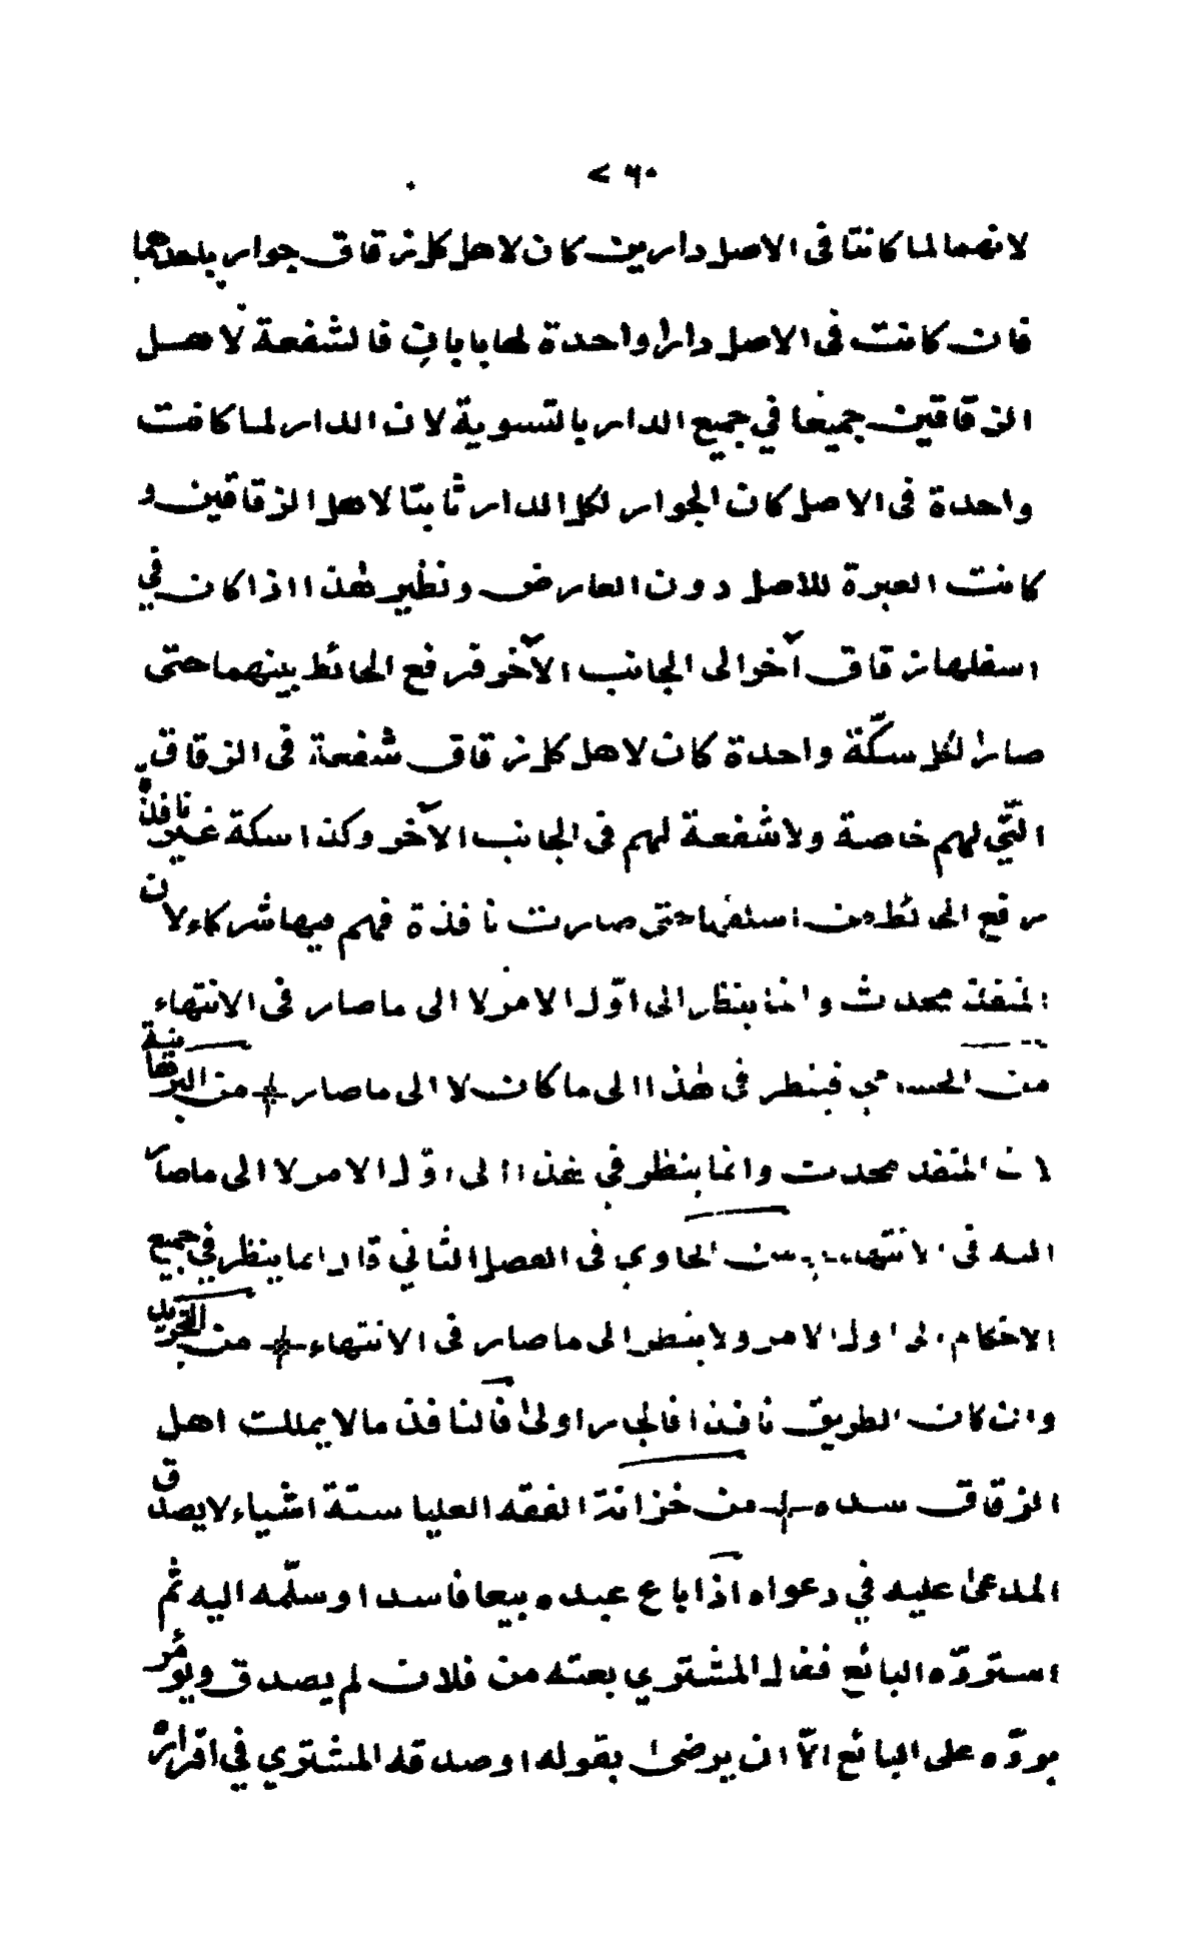 ٧٦٠
لانهما لما كانتا فى الاصل دارين كان لاهل كل زقاق جوار باحدهما
فان كانت فى الاصل دارا واحدة لها بابان فالشفعة لاهل
الزقاقين جميعا في جميع الدار بالتسوية لان الدار لما كانت
واحدة فى الاصل كان الجوار لكل الدار ثابتا لاهل الزقاقين و
كانت العبرة للاصل دون العارض ونظير هذا اذا كان في
اسفلها زقاق آخر الى الجانب الآخر فرفع الحائط بينهما حتى
صار الكل سكّة واحدة كان لاهل كل زقاق شفعة فى الزقاق
التّي لهم خاصة ولا شفعة لهم فى الجانب الآخر وكذا سكة غير نافذة
رفع الحائط من اسفلها حتى صارت نافذة فهم فيها شركاء لان
المنفذ محدث وانما ينظر الى اوّل الامر لا الى ما صار فى الانتهاء
من الحسامي فينظر فى هذا الى ما كان لا الى ما صار من البرهانية
لان المنفذ محدث وانما ينظر في هذا الى اوّل الامر لا الى ما صار
اليه فى الانتهاء من الحاوي فى الفصل الثاني قال انما ينظر في جميع
الاحكام الى اول الامر ولا ينظر الى ما صار فى الانتهاء من التجريد
وان كان الطريق نافذا فالجار اولى فالنافذ ما لا يملك اهل
الزقاق سده من خزانة الفقه العليا ستة اشياء لا يصدق
المدعى عليه في دعواه اذا باع عبده بيعا فاسدا وسلّمه اليه ثم
استردّه البائع فقال المشتري بعته من فلان لم يصدق ويؤمر
بردّه على البائع الّا ان يرضى بقوله او صدقه المشتري في اقراره